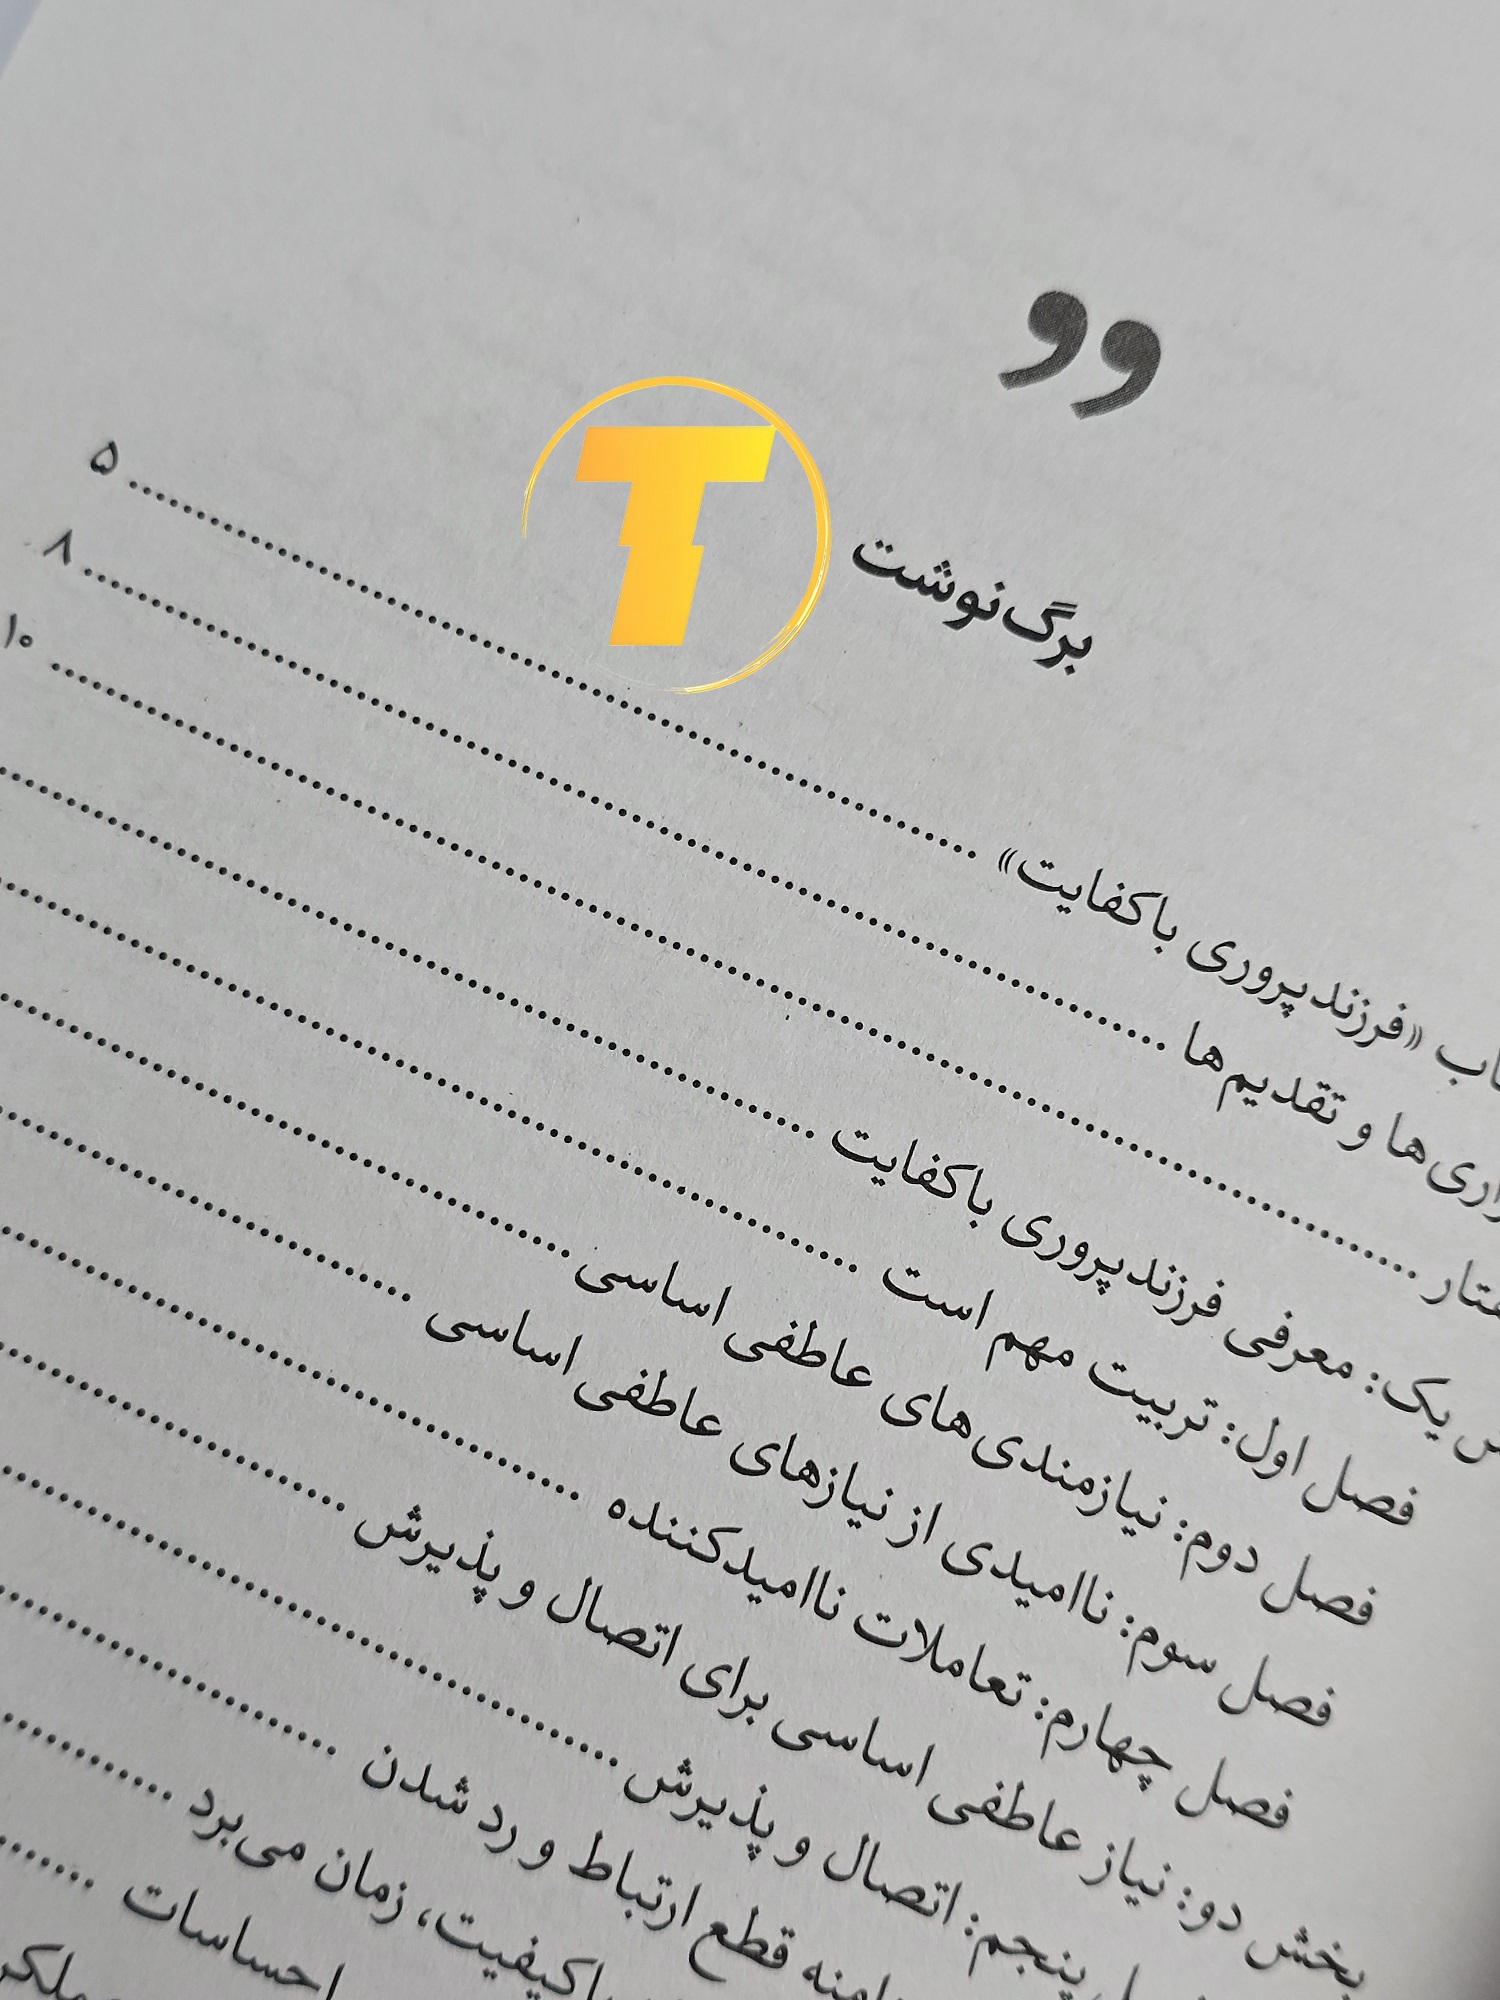 برگ‌نوشت
«فرزندپروری باکفایت» ........ ۵
و تقدیم‌ها ........ ۸
........ ۱۰
یک: معرفی فرزندپروری باکفایت ........
فصل اول: تربیت مهم است ........
فصل دوم: نیازمندی‌های عاطفی اساسی ........
فصل سوم: ناامیدی از نیازهای عاطفی اساسی ........
فصل چهارم: تعاملات ناامیدکننده ........
بخش دو: نیاز عاطفی اساسی برای اتصال و پذیرش ........
پنجم: اتصال و پذیرش ........
قطع ارتباط و رد شدن ........
باکیفیت، زمان می‌برد ........
احساسات ........
T